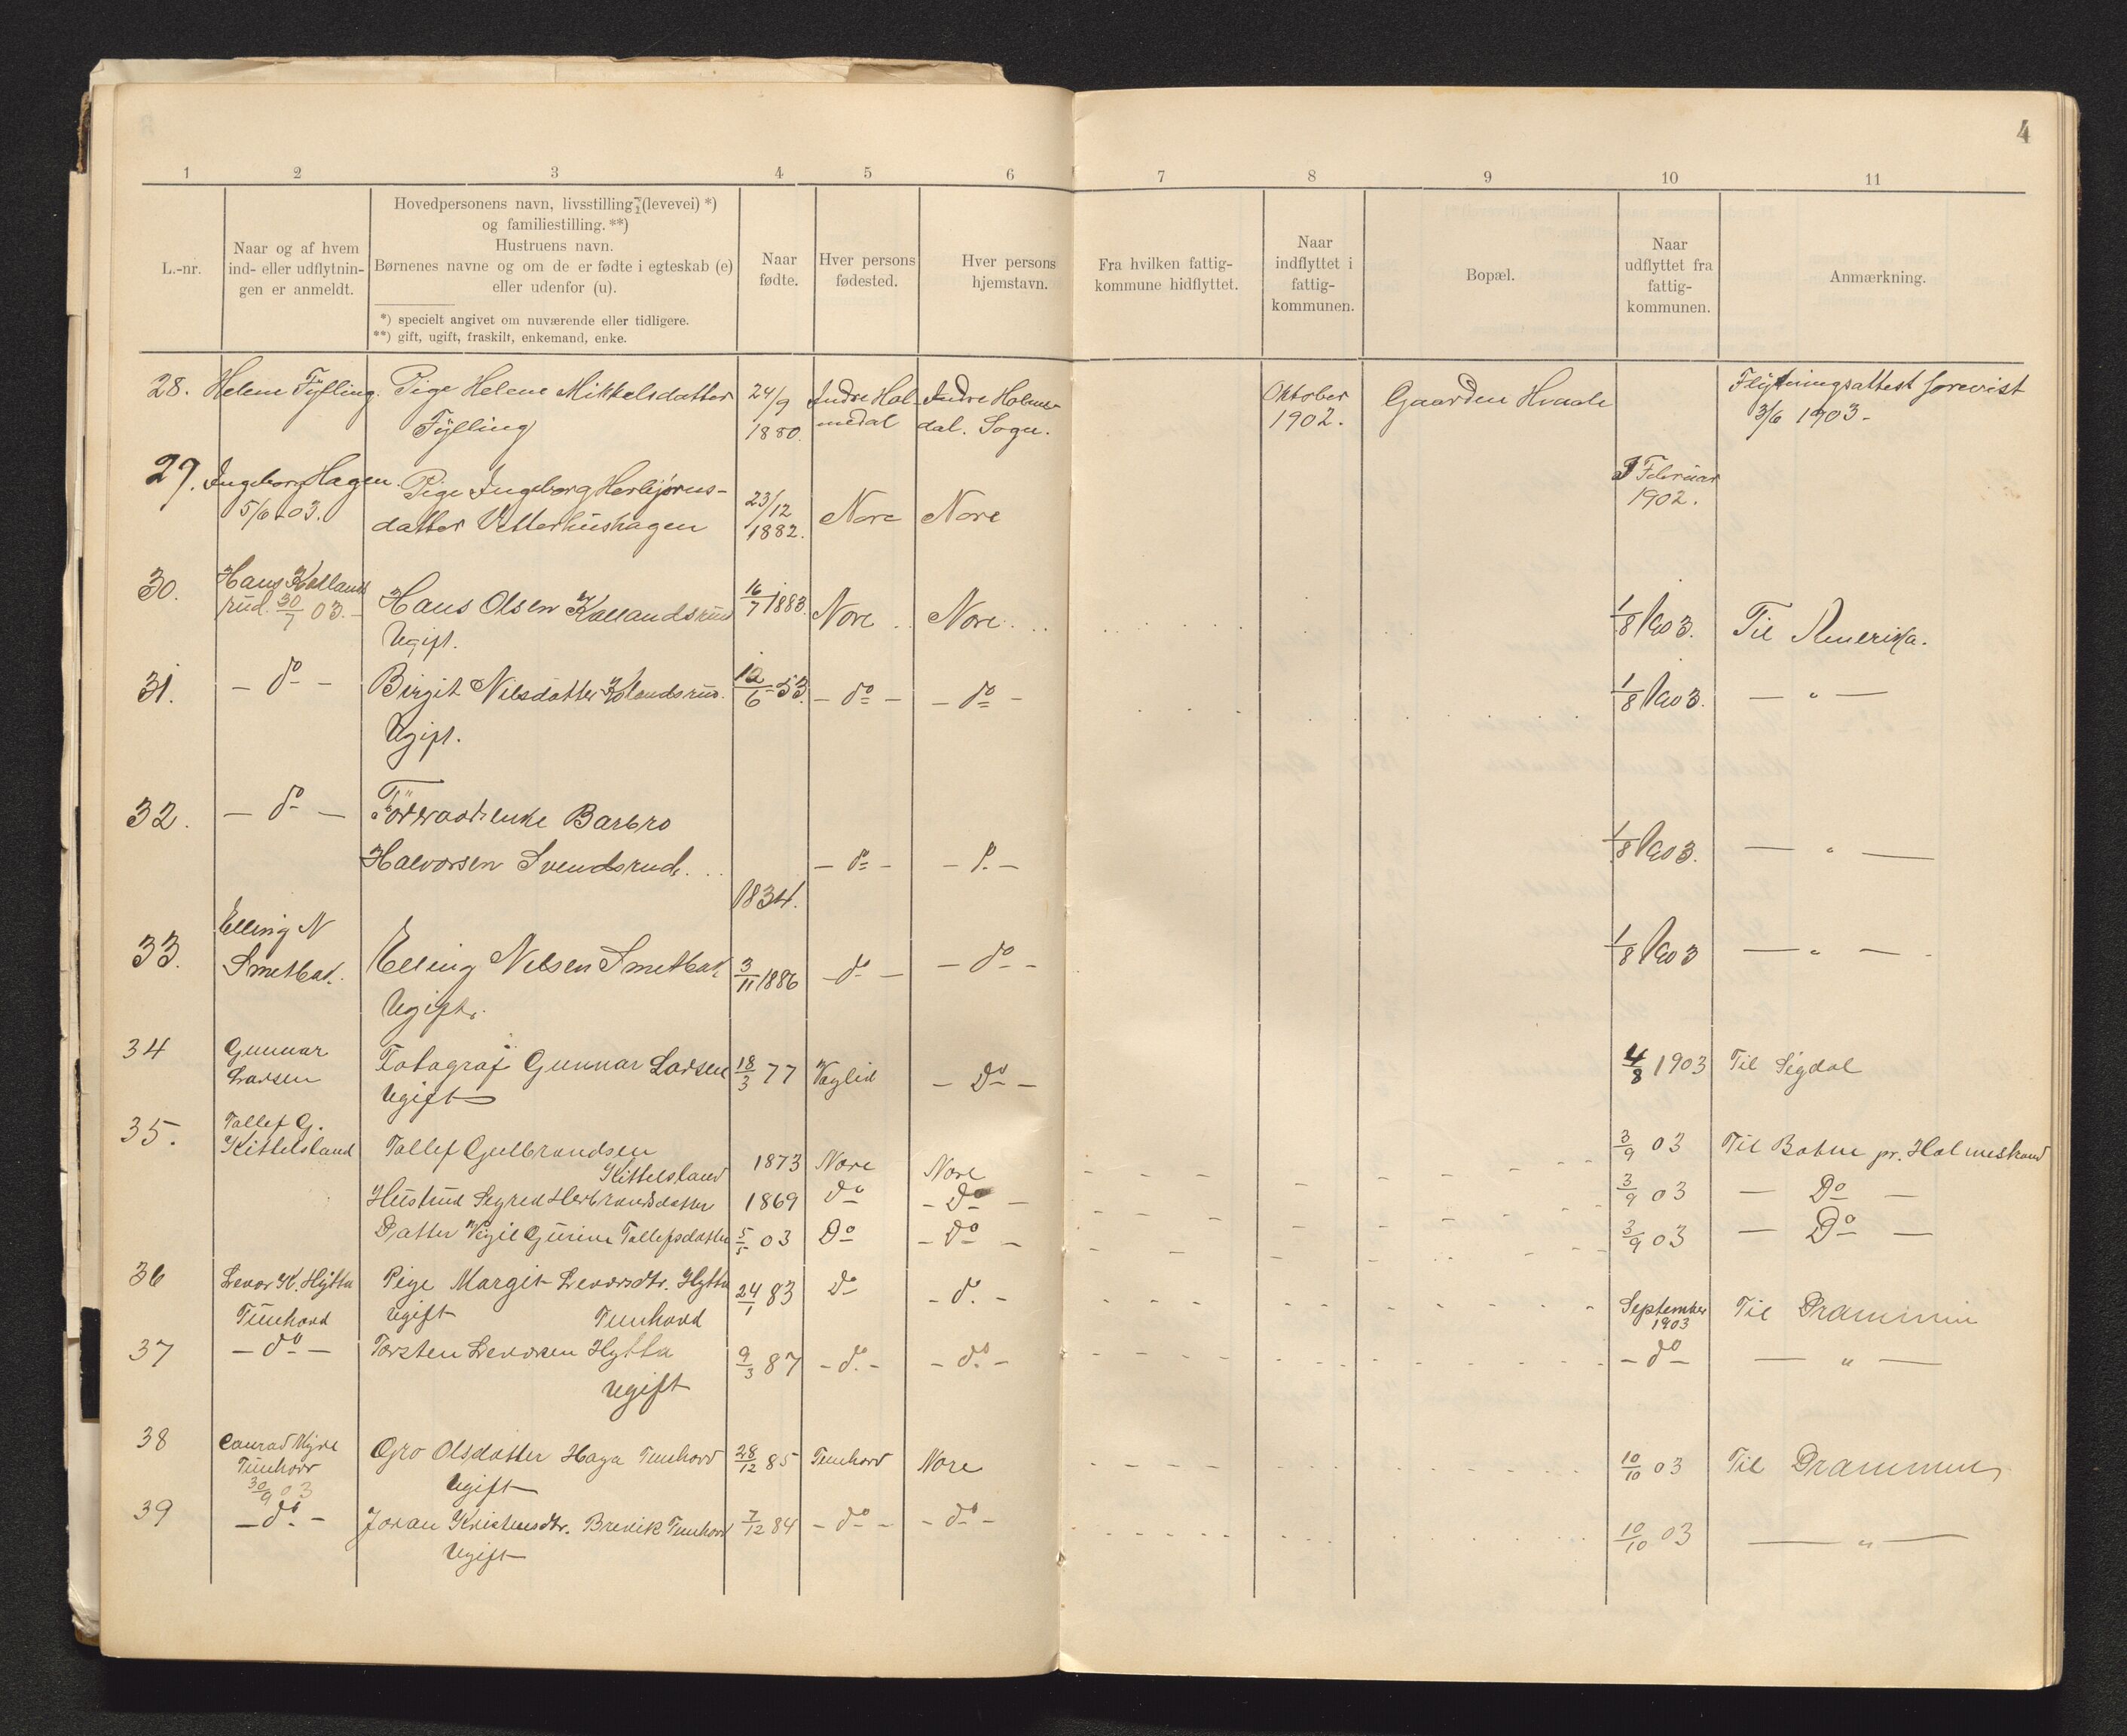 4
1 2 3 4 5 6 7 8 9 10 11
L.-nr.
Naar og af hvem
ind- eller udflytnin-
gen er anmeldt.
Hovedpersonens navn, livsstilling (levevei) *)
og familiestilling. **)
Hustruens navn.
Børnenes navne og om de er fødte i egteskab (e)
eller udenfor (u).
*) specielt angivet om nuværende eller tidligere.
**) gift, ugift, fraskilt, enkemand, enke.
Naar
fødte.
Hver persons
fødested.
Hver persons
hjemstavn.
Fra hvilken fattig-
kommune hidflyttet.
Naar
indflyttet i
fattig-
kommunen.
Bopæl.
Naar
udflyttet fra
fattig-
kommunen.
Anmærkning.
28. Helene Fylling. Pige Helene Mikkelsdatter 24/9 Indre Hol- Indre Holme- Oktober Gaarden Hvaale Flytningsattest forevist
Fylling 1880. medal dal. Sogn. 1902. 3/6 1903 -
29. Ingeborg Hagen. Pige Ingeborg Herbjørns- 23/12 Nore Nore Februar
5/6 - 03. datter Vetterhushagen 1882. 1902.
30. Hans Kolland Hans Olsen Kollandsrud 16/7 1883. Nore Nore 1/8 1903. Til Amerika.
rud. 30/7 03. - Ugift.
31. - do - Birgit Nilsdatter Kolandsrud. 12/6 - 53. - do - - do - 1/8 1903. - " -
Ugift.
32. - do - Forraadsenke Barbro
Halvorsen Svendsrud. - do - - do - 1/8 1903. - " -
1834.
Elling N
33. Smetbak. Elling Nilsen Smetbak 3/11 1886 - do - - do - 1/8 1903 - " -
Ugift.
34 Gunnar Fotograf Gunnar Larsen 18/3 77 Veglid - Do - 4/8 1903 Til Sigdal
Larsen Ugift
35. Tollef G.
Kittelsland Tollef Gulbrandsen 1873 Nore Nore 3/9 03 Til Botne pr. Holmestrand
Kittelsland
Hustrud Sigred Herbrandsdatter 1869 do - Do - 3/9 03 - Do -
Datter Vigil Gurine Tollefsdatter 5/5 03 Do - Do - 3/9 03 - Do -
36 Levor K. Hytta Pige Margit Levorsdtr. Hytta 24/1 83 do - do. - September Til Drammen
Tunhovd ugift Tunhovd 1903
37 - do - Torsten Levorsen Hytta 9/3 87 - do. - - do. - - do - - " -
ugift
38 Conrad Myre Gro Olsdatter Haga Tunhovd 28/12 85 Tunhovd Nore 10/10 03 Til Drammen
Tunhovd Ugift
30/9 03
39 - do - Joran Kristensdtr. Brevik Tunhovd 7/12 84 - do - - do - 10/10 03 - " -
Ugift